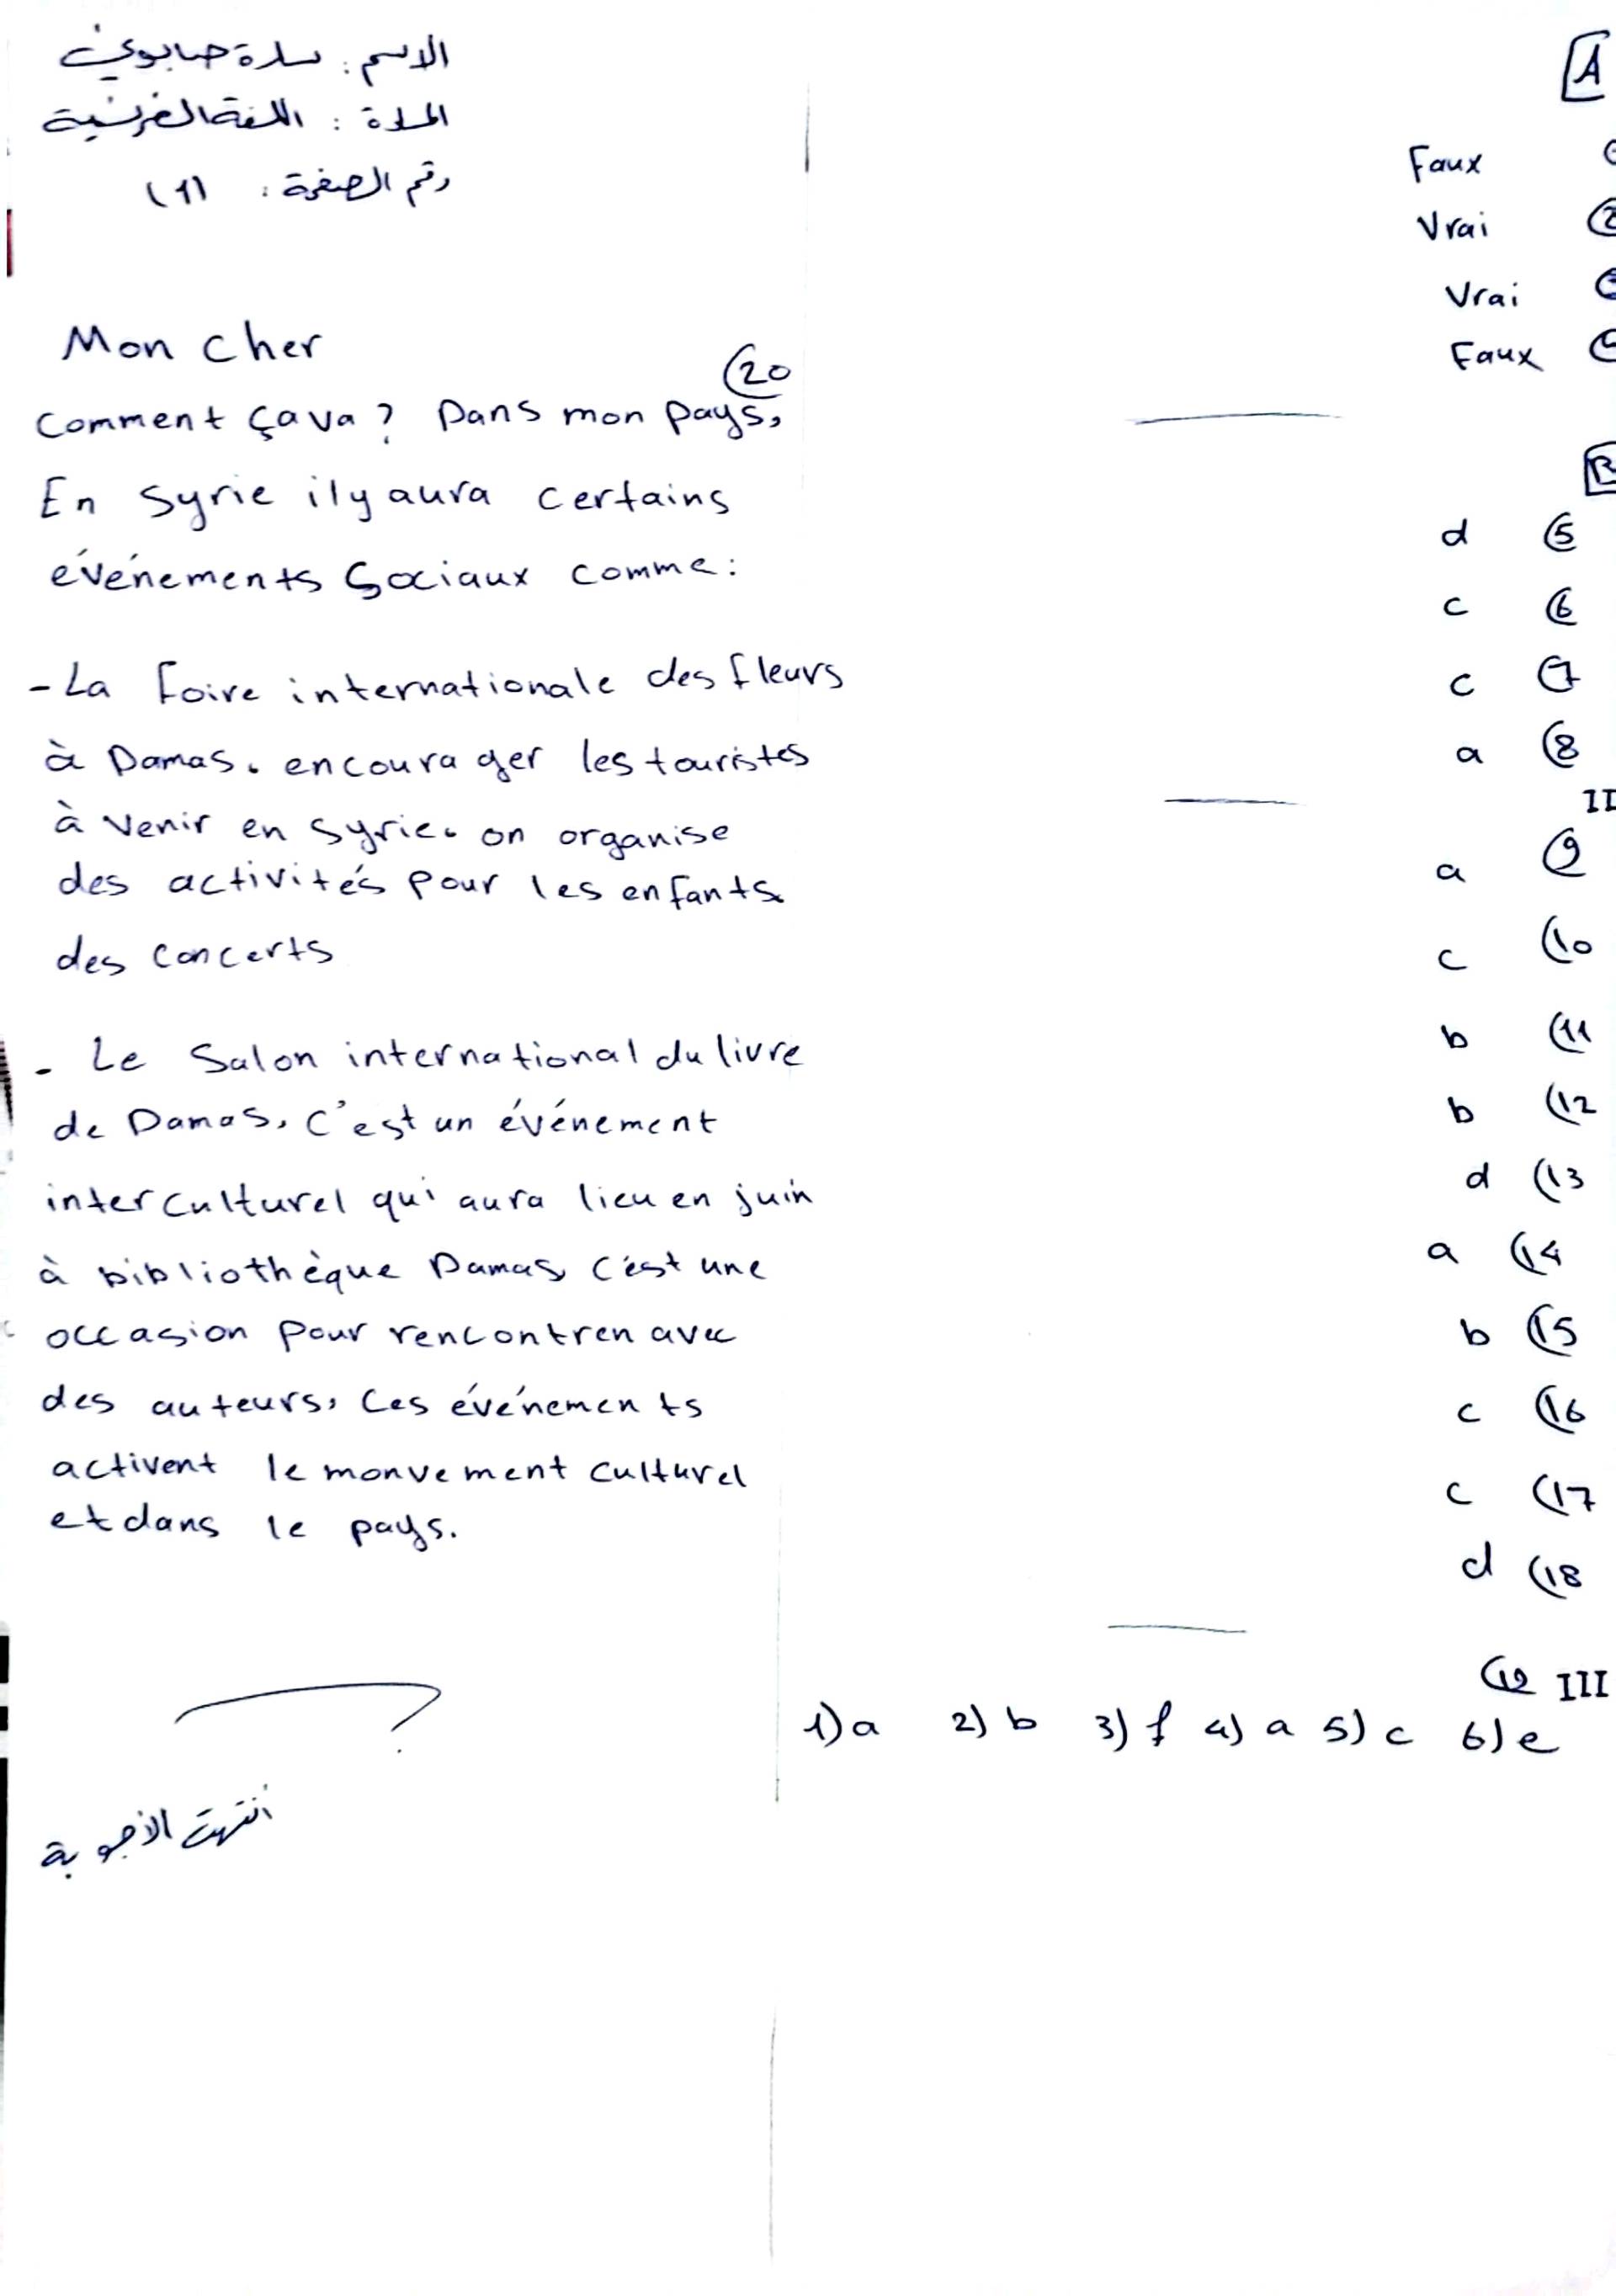 الاسم : سارة صابوني
المادة : اللغة الفرنسية
رقم الصفحة : (1)
A
Faux
Vrai 2
Vrai
Faux
B
d 5
c 6
c 7
a 8
II
a 9
c 10
b 11
b 12
d 13
a 14
b 15
c 16
c 17
d 18
19 III
1) a 2) b 3) f 4) a 5) c 6) e
20
Mon cher
Comment çava? Dans mon pays,
En Syrie ilyaura certains
événements Sociaux comme:
- La Foire internationale des fleurs
à Damas. encourager les touristes
à venir en Syrie. on organise
des activités pour les enfants
des concerts
- Le Salon international du livre
de Damas, C'est un événement
interculturel qui aura lieu en juin
à bibliothèque Damas, C'est une
occasion pour rencontren avec
des auteurs, Ces événements
activent le monvement culturel
et dans le pays.
انتهت الأجوبة